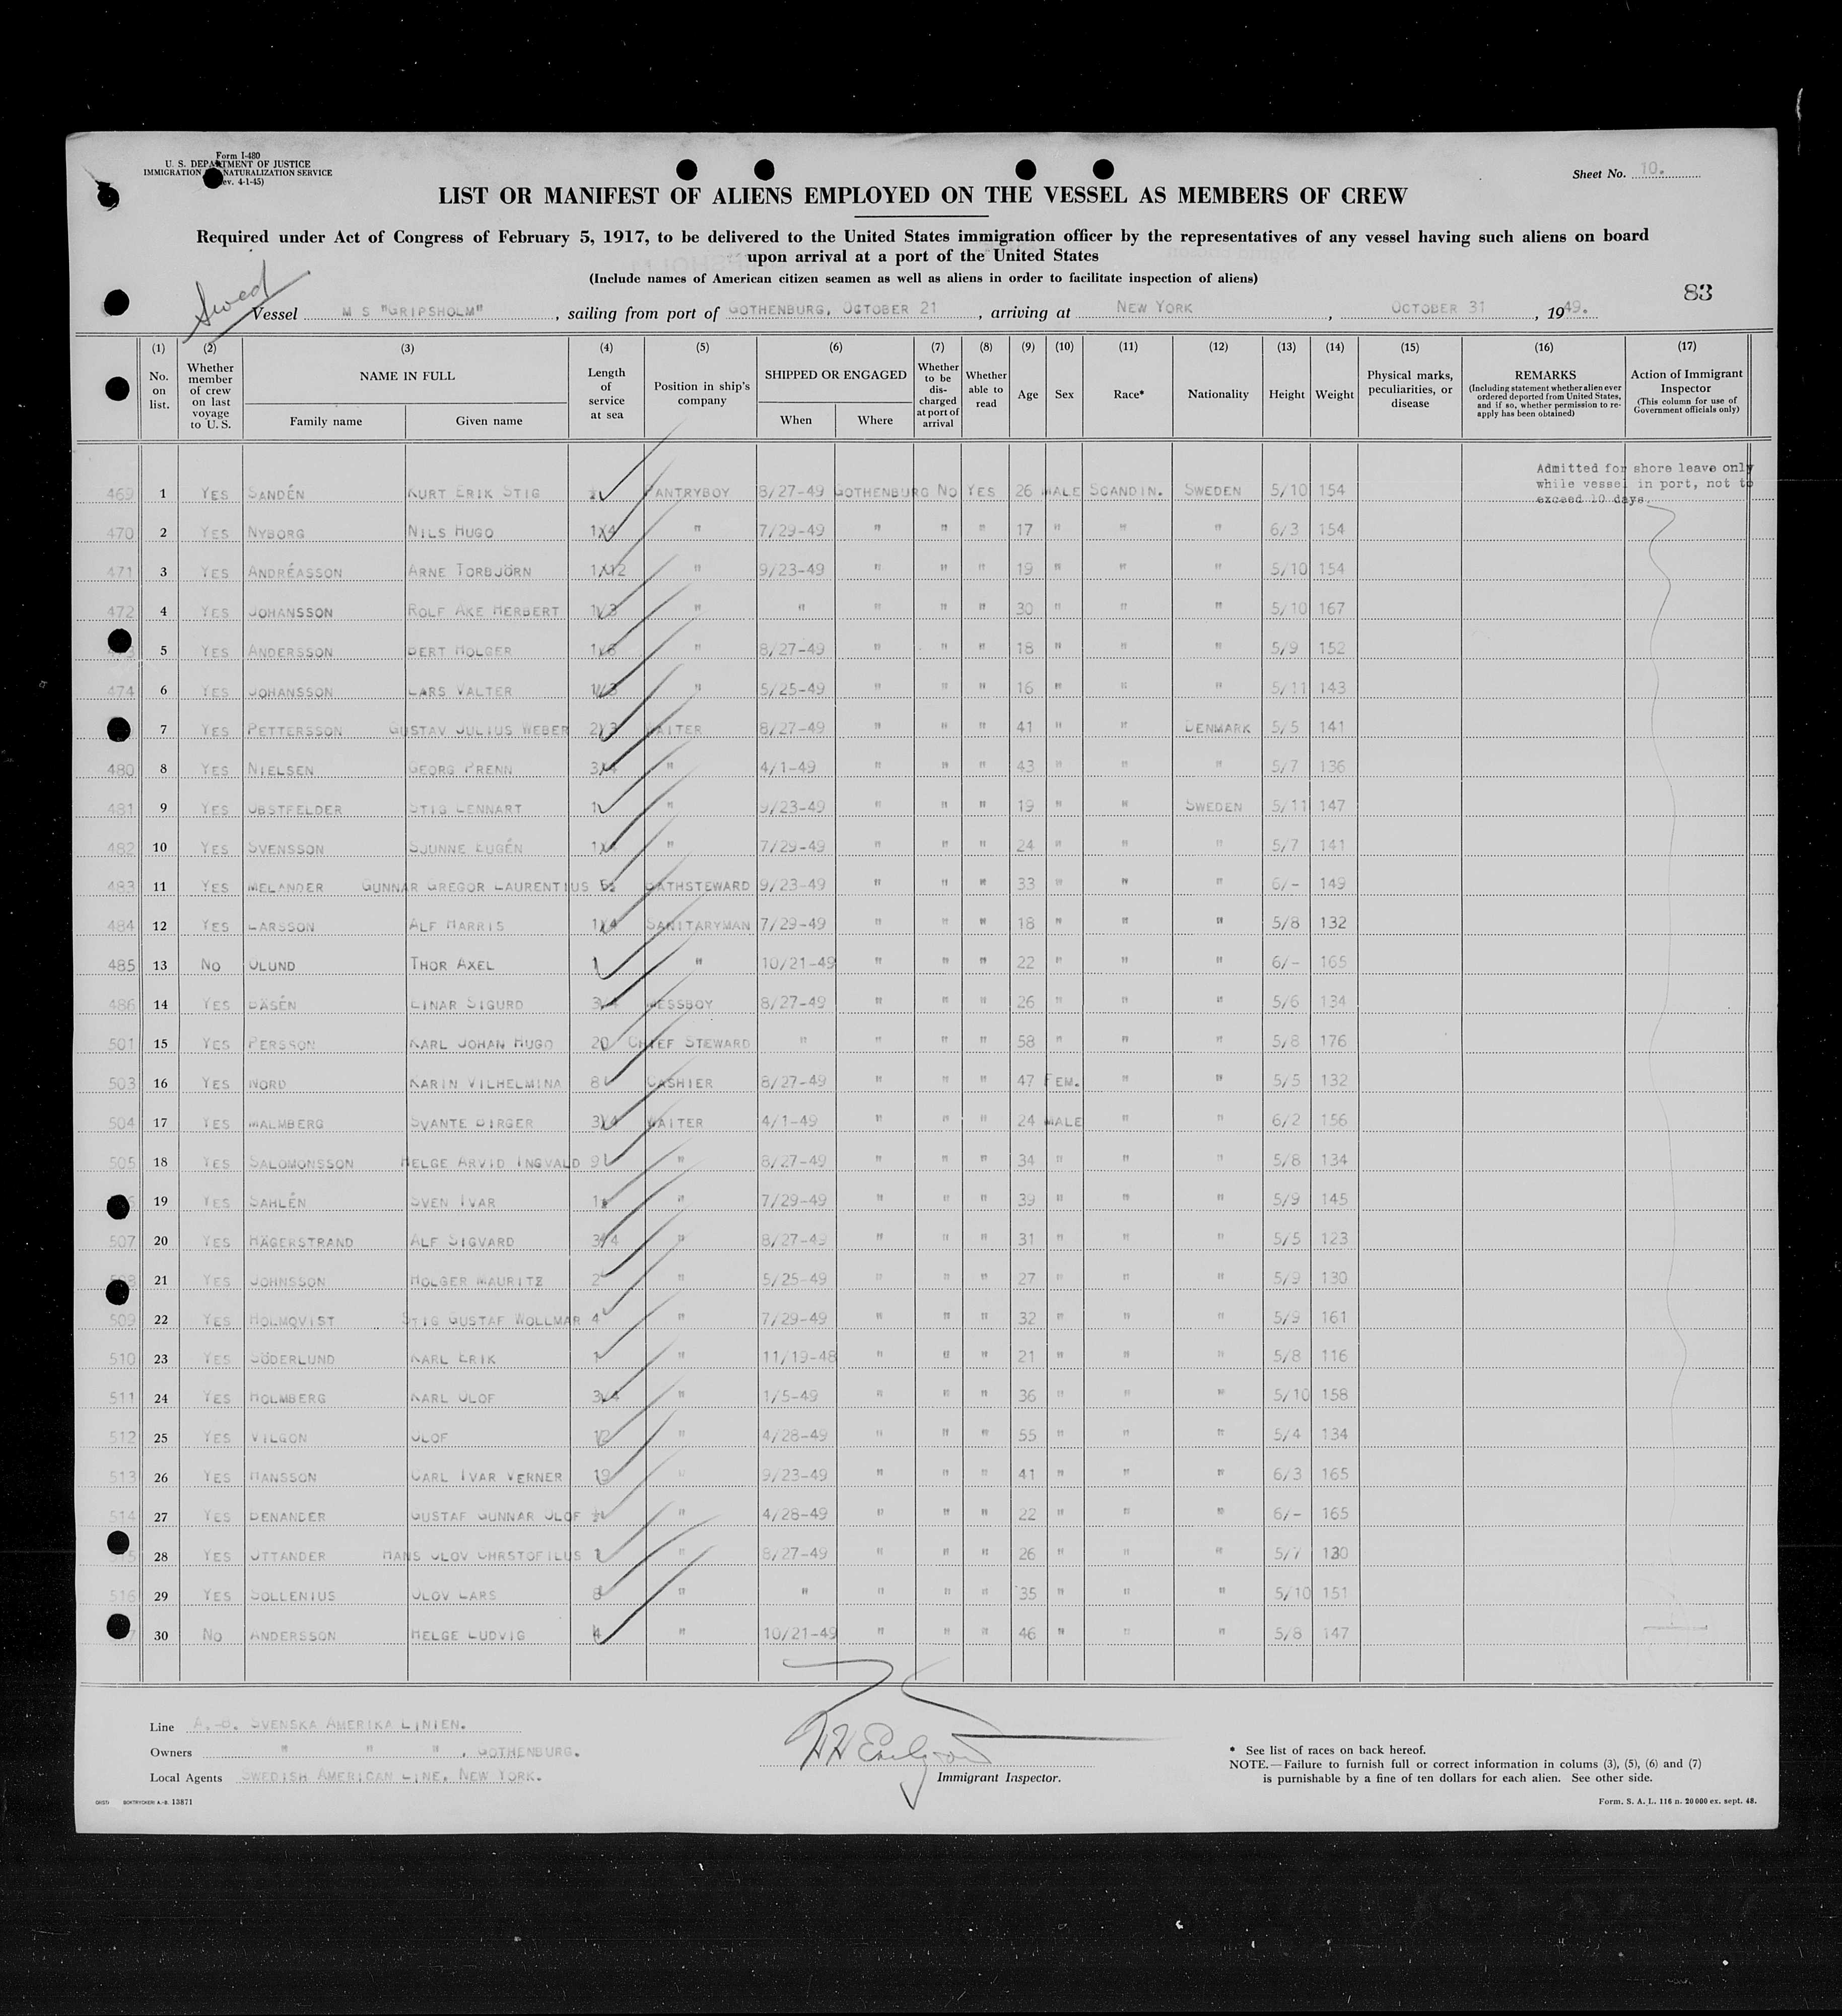 Form I-480
U. S. DEPARTMENT OF JUSTICE
IMMIGRATION NATURALIZATION SERVICE
ev. 4-1-45)
Sheet No. 10.
LIST OR MANIFEST OF ALIENS EMPLOYED ON THE VESSEL AS MEMBERS OF CREW
Required under Act of Congress of February 5, 1917, to be delivered to the United States immigration officer by the representatives of any vessel having such aliens on board
upon arrival at a port of the United States
(Include names of American citizen seamen as well as aliens in order to facilitate inspection of aliens)
Swed
83
Vessel M S "GRIPSHOLM", sailing from port of GOTHENBURG, OCTOBER 21, arriving at NEW YORK, OCTOBER 31, 1949.
(1) (2) (3) (4) (5) (6) (7) (8) (9) (10) (11) (12) (13) (14) (15) (16) (17)
No. on list. Whether member of crew on last voyage to U. S. NAME IN FULL Family name Given name Length of service at sea Position in ship's company SHIPPED OR ENGAGED When Where Whether to be discharged at port of arrival Whether able to read Age Sex Race* Nationality Height Weight Physical marks, peculiarities, or disease REMARKS (Including statement whether alien ever ordered deported from United States, and if so, whether permission to reapply has been obtained) Action of Immigrant Inspector (This column for use of Government officials only)
Admitted for shore leave only
while vessel in port, not to
exceed 10 days.
469 1 YES SANDÉN KURT ERIK STIG PANTRYBOY 8/27-49 GOTHENBURG NO YES 26 MALE SCANDIN. SWEDEN 5/10 154
470 2 YES NYBORG NILS HUGO " 7/29-49 " " " 17 " " " 6/3 154
471 3 YES ANDRÉASSON ARNE TORBJÖRN " 9/23-49 " " " 19 " " " 5/10 154
472 4 YES JOHANSSON ROLF AKE HERBERT " " " " " 30 " " " 5/10 167
5 YES ANDERSSON BERT HOLGER " 8/27-49 " " " 18 " " " 5/9 152
474 6 YES JOHANSSON LARS VALTER " 5/25-49 " " " 16 " " " 5/11 143
7 YES PETTERSSON GUSTAV JULIUS WEBER WAITER 8/27-49 " " " 41 " " DENMARK 5/5 141
480 8 YES NIELSEN GEORG PRENN " 4/1-49 " " " 43 " " " 5/7 136
481 9 YES OBSTFELDER STIG LENNART 1 " 9/23-49 " " " 19 " " SWEDEN 5/11 147
482 10 YES SVENSSON SJUNNE EUGÉN " 7/29-49 " " " 24 " " " 5/7 141
483 11 YES MELANDER GUNNAR GREGOR LAURENTIUS BATHSTEWARD 9/23-49 " " " 33 " " " 6/- 149
484 12 YES LARSSON ALF HARRIS SANITARYMAN 7/29-49 " " " 18 " " " 5/8 132
485 13 NO OLUND THOR AXEL 1 " 10/21-49 " " " 22 " " " 6/- 165
486 14 YES BÄSÉN EINAR SIGURD MESSBOY 8/27-49 " " " 26 " " " 5/6 134
501 15 YES PERSSON KARL JOHAN HUGO 20 CHIEF STEWARD " " " " 58 " " " 5/8 176
503 16 YES NORD KARIN VILHELMINA 8 CASHIER 8/27-49 " " " 47 FEM. " " 5/5 132
504 17 YES MALMBERG SVANTE BIRGER WAITER 4/1-49 " " " 24 MALE " " 6/2 156
505 18 YES SALOMONSSON HELGE ARVID INGVALD 9 " 8/27-49 " " " 34 " " " 5/8 134
19 YES SAHLÉN SVEN IVAR " 7/29-49 " " " 39 " " " 5/9 145
507 20 YES HÄGERSTRAND ALF SIGVARD 3/4 " 8/27-49 " " " 31 " " " 5/5 123
21 YES JOHNSSON HOLGER MAURITZ 2 " 5/25-49 " " " 27 " " " 5/9 130
509 22 YES HOLMQVIST STIG GUSTAF WOLLMAR 4 " 7/29-49 " " " 32 " " " 5/9 161
510 23 YES SÖDERLUND KARL ERIK 1 " 11/19-48 " " " 21 " " " 5/8 116
511 24 YES HOLMBERG KARL OLOF " 1/5-49 " " " 36 " " " 5/10 158
512 25 YES VILGON OLOF 12 " 4/28-49 " " " 55 " " " 5/4 134
513 26 YES HANSSON CARL IVAR VERNER 19 " 9/23-49 " " " 41 " " " 6/3 165
514 27 YES BENANDER GUSTAF GUNNAR OLOF " 4/28-49 " " " 22 " " " 6/- 165
28 YES OTTANDER HANS OLOV CHRSTOFILUS 1 " 8/27-49 " " " 26 " " " 5/7 130
516 29 YES SOLLENIUS OLOV LARS 8 " " " " " 35 " " " 5/10 151
30 NO ANDERSSON HELGE LUDVIG 4 " 10/21-49 " " " 46 " " " 5/8 147
Line A.-B. SVENSKA AMERIKA LINIEN.
Owners " " " , GOTHENBURG.
Local Agents SWEDISH AMERICAN LINE, NEW YORK.
Immigrant Inspector.
* See list of races on back hereof.
NOTE.—Failure to furnish full or correct information in colums (3), (5), (6) and (7)
is punishable by a fine of ten dollars for each alien. See other side.
BOKTRYCKERI A.-B. 13871
Form. S. A. L. 116 n. 20000 ex. sept. 48.